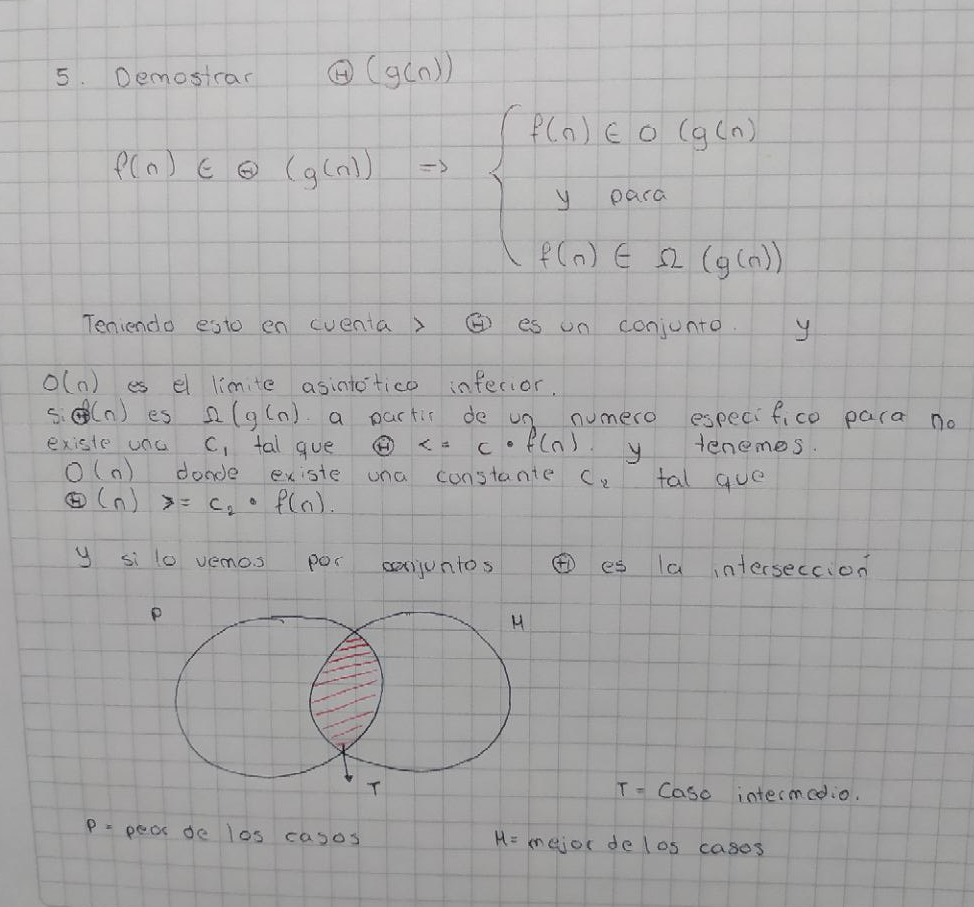 5. Demostrar Ⓗ (g(n))
f(n) ∈ O (g(n)
f(n) ∈ Ⓗ (g(n)) =>
y para
f(n) ∈ Ω (g(n))
Teniendo esto en cuenta > Ⓗ es un conjunto. y
O(n) es el límite asintótico inferior.
si Ⓗ(n) es Ω(g(n). a partir de un numero especifico para no
existe una C₁ tal que Ⓗ <= c • f(n). y tenemos.
O(n) donde existe una constante C₂ tal que
Ⓗ(n) >= C₂ • f(n).
y si lo vemos por conjuntos Ⓗ es la intersección
P M
T
T = Caso intermedio.
P = peor de los casos M = mejor de los casos